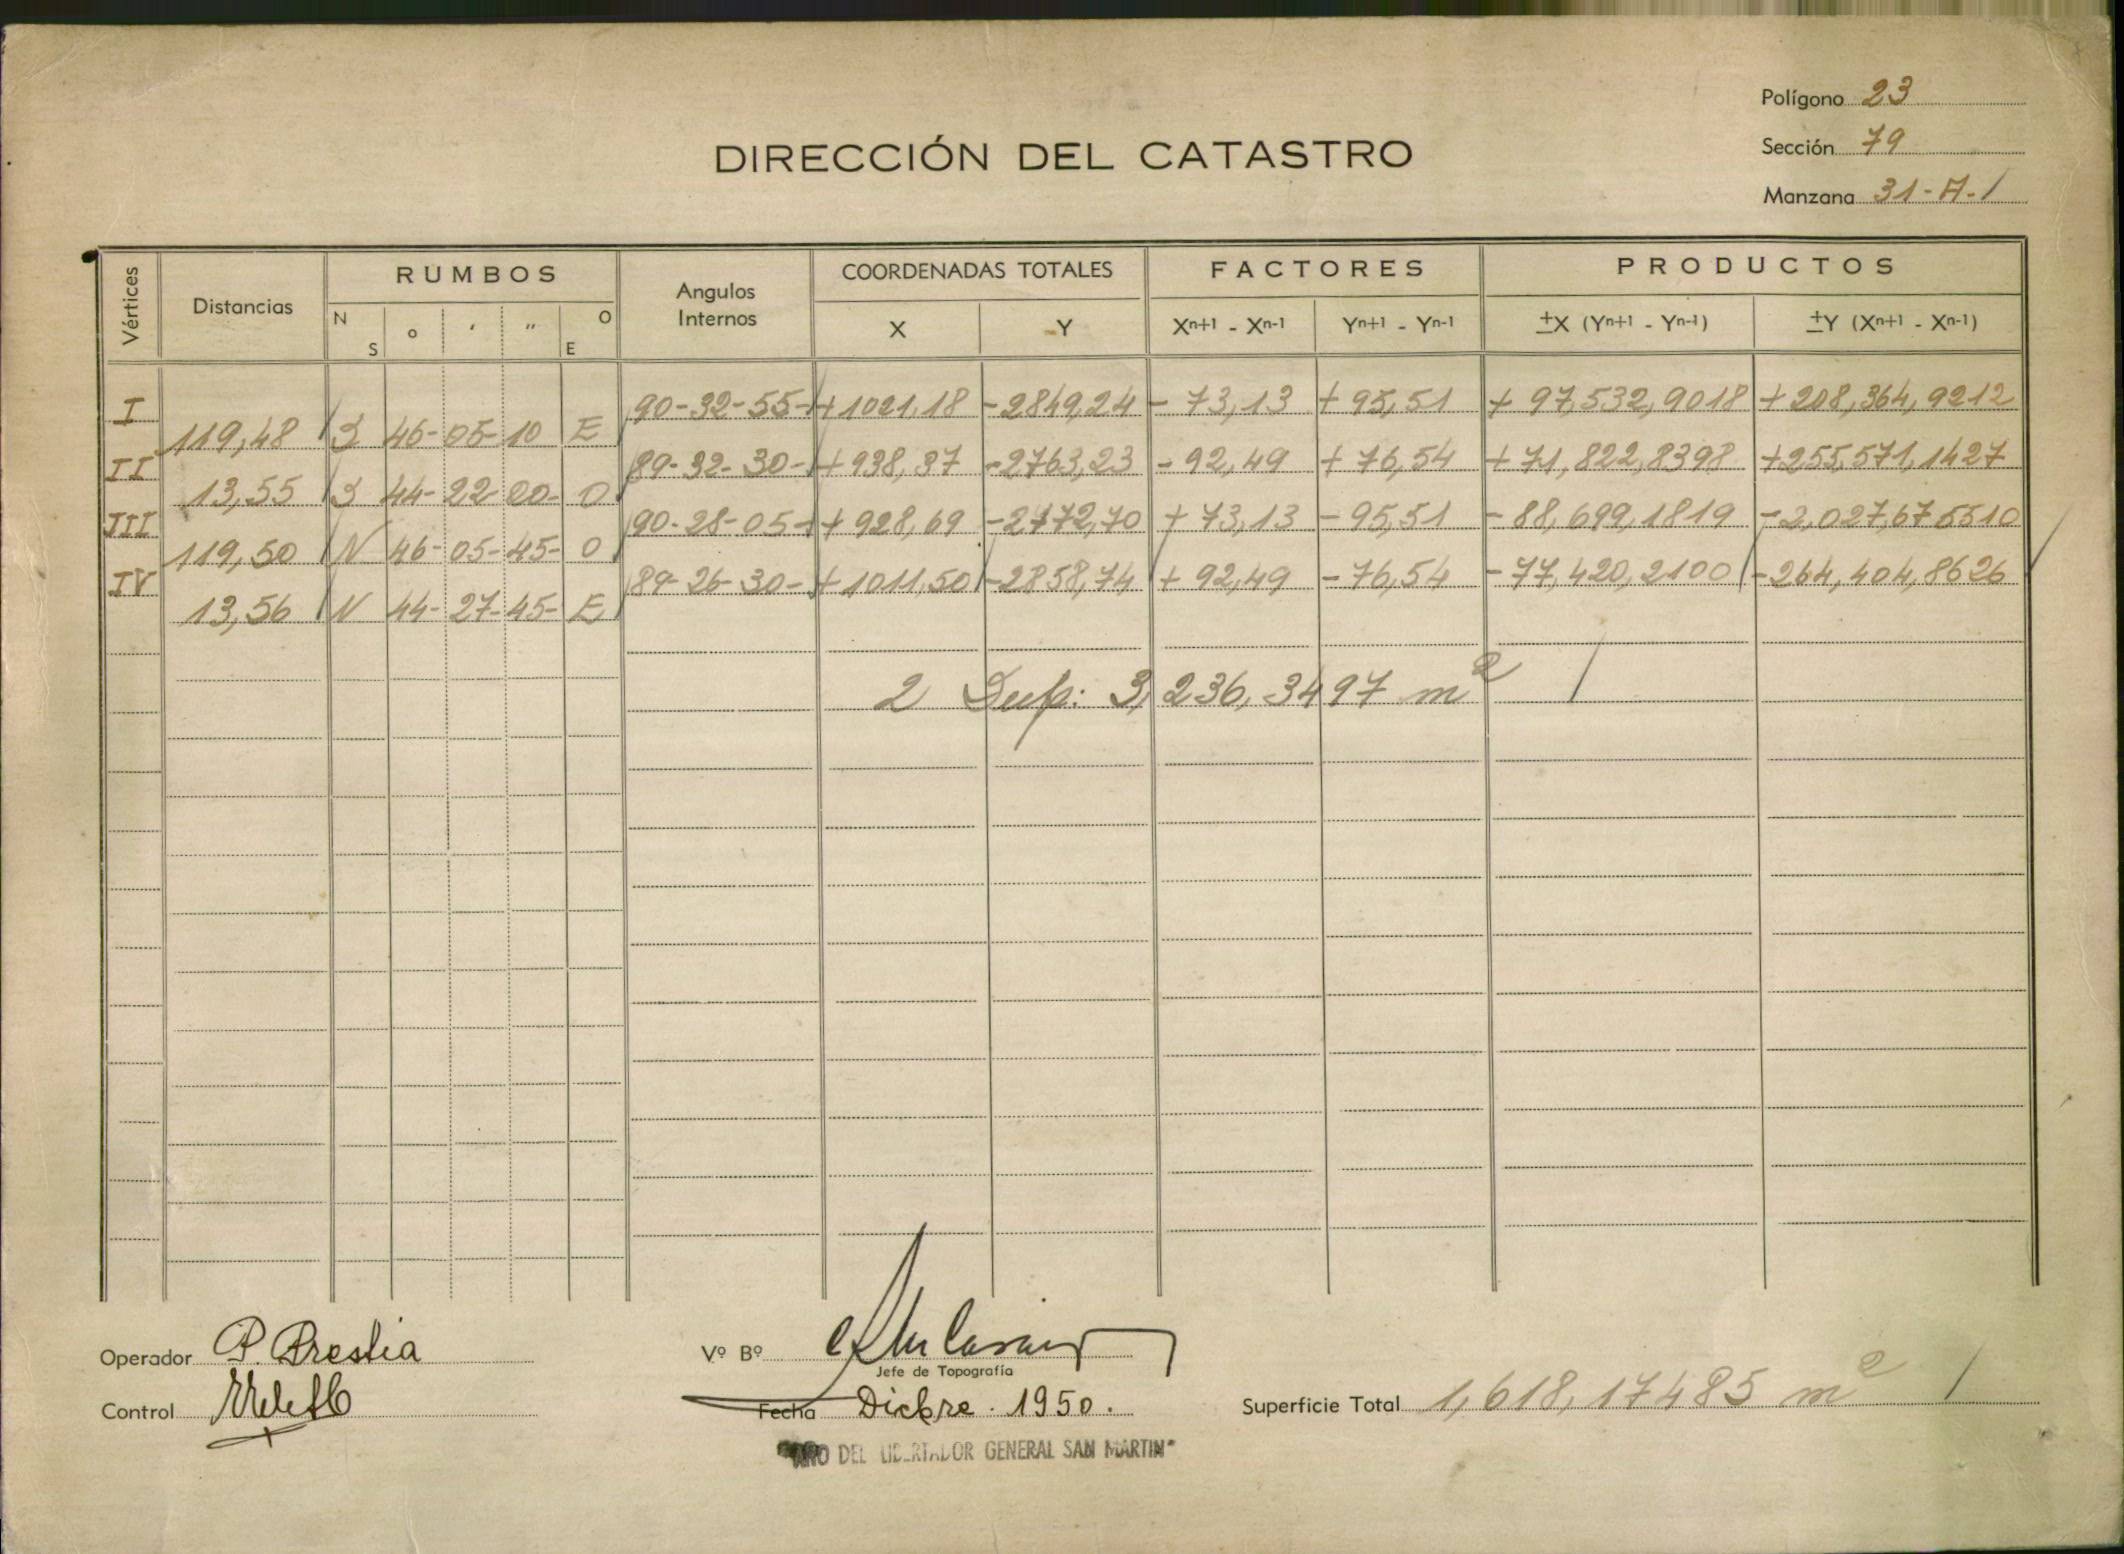 Polígono 23
DIRECCIÓN DEL CATASTRO
Sección 79
Manzana 31-A-1
Vértices Distancias RUMBOS Angulos Internos COORDENADAS TOTALES FACTORES PRODUCTOS
N S o ' " O E X Y Xn+1 - Xn-1 Yn+1 - Yn-1 ±X (Yn+1 - Yn-1) ±Y (Xn+1 - Xn-1)
I 90-32-55- +1021,18 -2849,24 - 73,13 + 95,51 + 97,532,9018 +208,364,9212
119,48 S 46- 05- 10 E
II 89-32-30- +938,37 -2763,23 -92,49 + 76,54 +71,822,8398 +255,571,1427
13,55 S 44- 22- 00- O
III 90-28-05- +928,69 -2772,70 + 73,13 -95,51 -88,699,1819 -2,027,675510
119,50 N 46- 05- 45- O
IV 89-26-30- +1011,50 -2858,74 + 92,49 -76,54 -77,420,2100 -264,404,8626
13,56 N 44- 27- 45- E
2 Sup: 3,236,3497 m2
Operador P. Brestia
Vº Bº
Jefe de Topografía
Control
Fecha Dicbre. 1950.
Superficie Total 1,618,17485 m2
"AÑO DEL LIBERTADOR GENERAL SAN MARTIN"